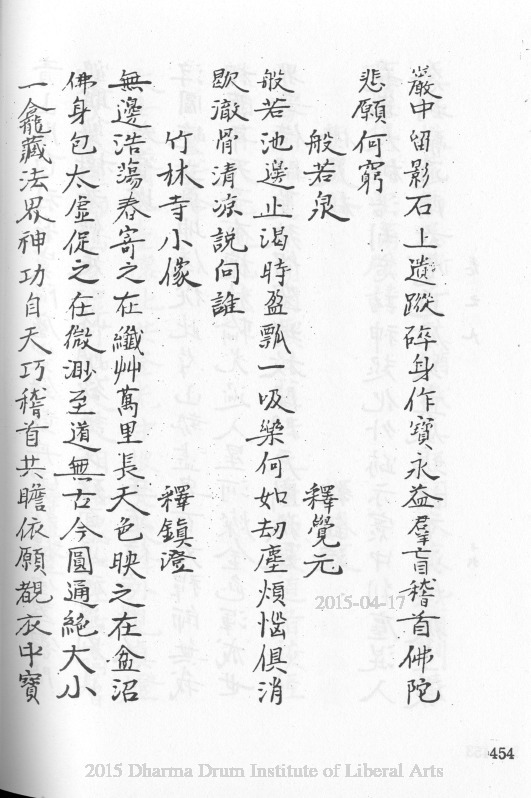 巖中留影石上遺蹤碎身作寶永益羣盲稽首佛陀
悲願何窮
般若泉 釋覺元
般若池邊止渴時盈瓢一吸樂何如劫塵煩惱俱消
歇澈骨清涼說向誰
竹林寺小像 釋鎮澄
無邊浩蕩春寄之在纖艸萬里長天色映之在盆沼
佛身包太虛促之在微渺至道無古今圓通絶大小
一龕藏法界神功自天巧稽首共瞻依願覩衣中寶
2015-04-17
454
2015 Dharma Drum Institute of Liberal Arts